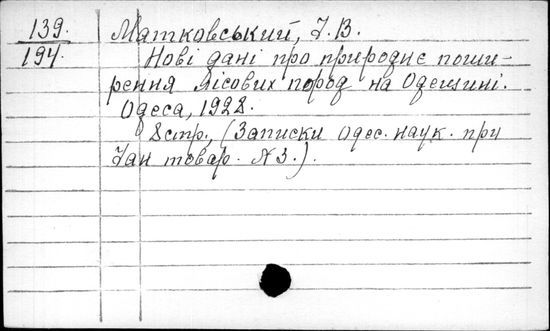 139.
194.
Матковський, І. В.
Нові дані про природнє поши-
рення лісових пород на Одещині.
Одеса, 1928.
8 стр., (Записки Одес. наук. при
Uан товар. N3.).